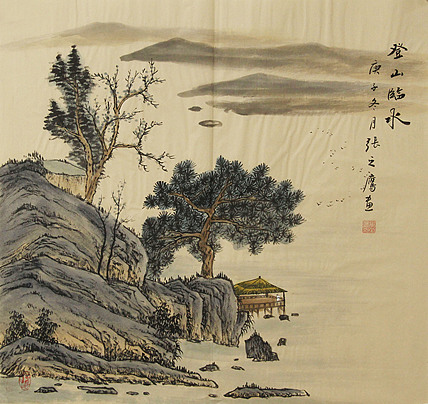 登山臨水
庚子冬月張之應画